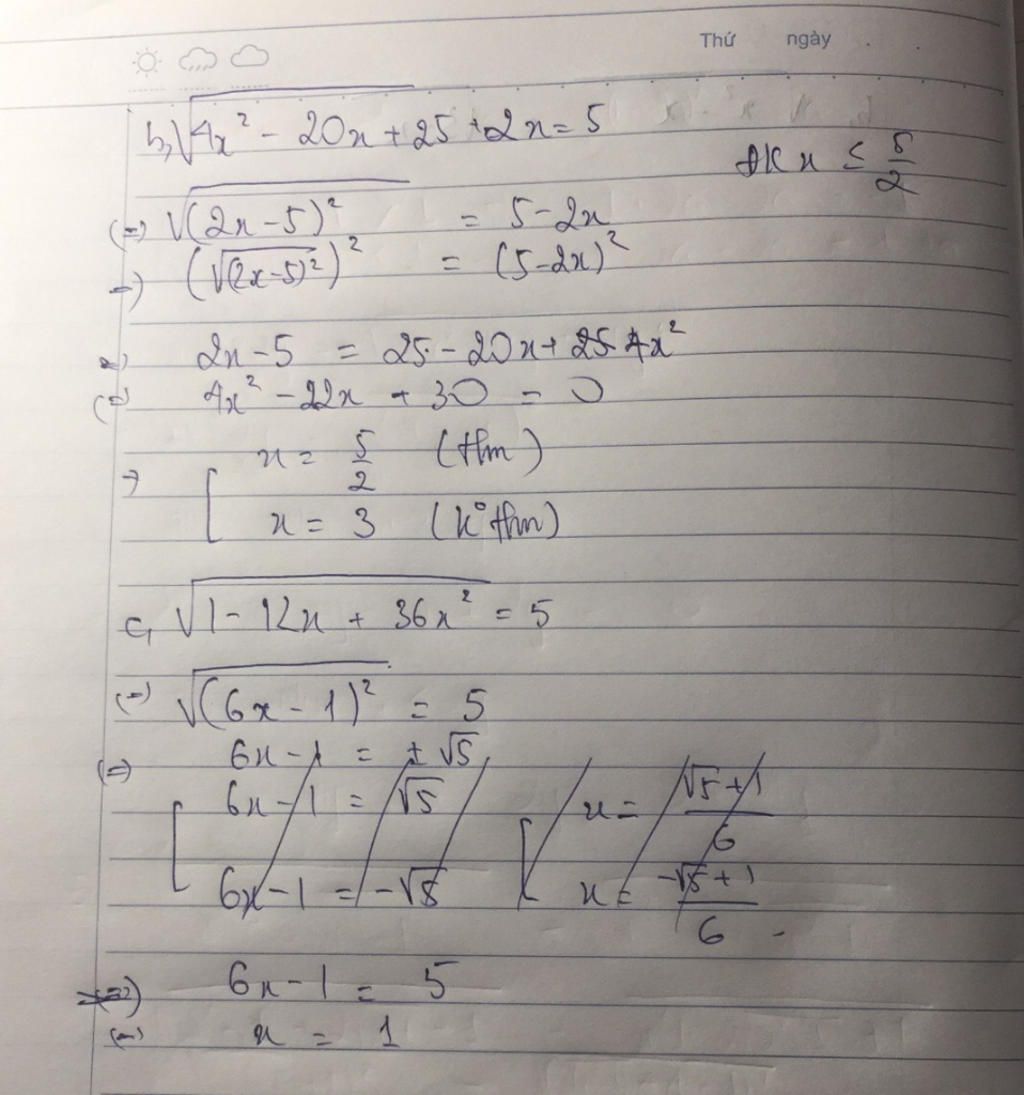 Thứ ngày
b, √(4x² - 20x + 25) + 2x = 5
ĐK x ≤ 5/2
(=) √((2x-5)²) = 5-2x
=) (√((2x-5)²))² = (5-2x)²
=) 2x-5 = 25-20x+ 4x²
(=) 4x² - 22x + 30 = 0
=) [ x = 5/2 (thm)
x = 3 (k° thm)
c, √(1 - 12x + 36x²) = 5
(=) √((6x - 1)²) = 5
(=) 6x - 1 = ± √5
[ 6x - 1 = √5 [ x = (√5 + 1)/6
6x - 1 = -√5 x = (-√5 + 1)/6
6x - 1 = 5
(=) x = 1